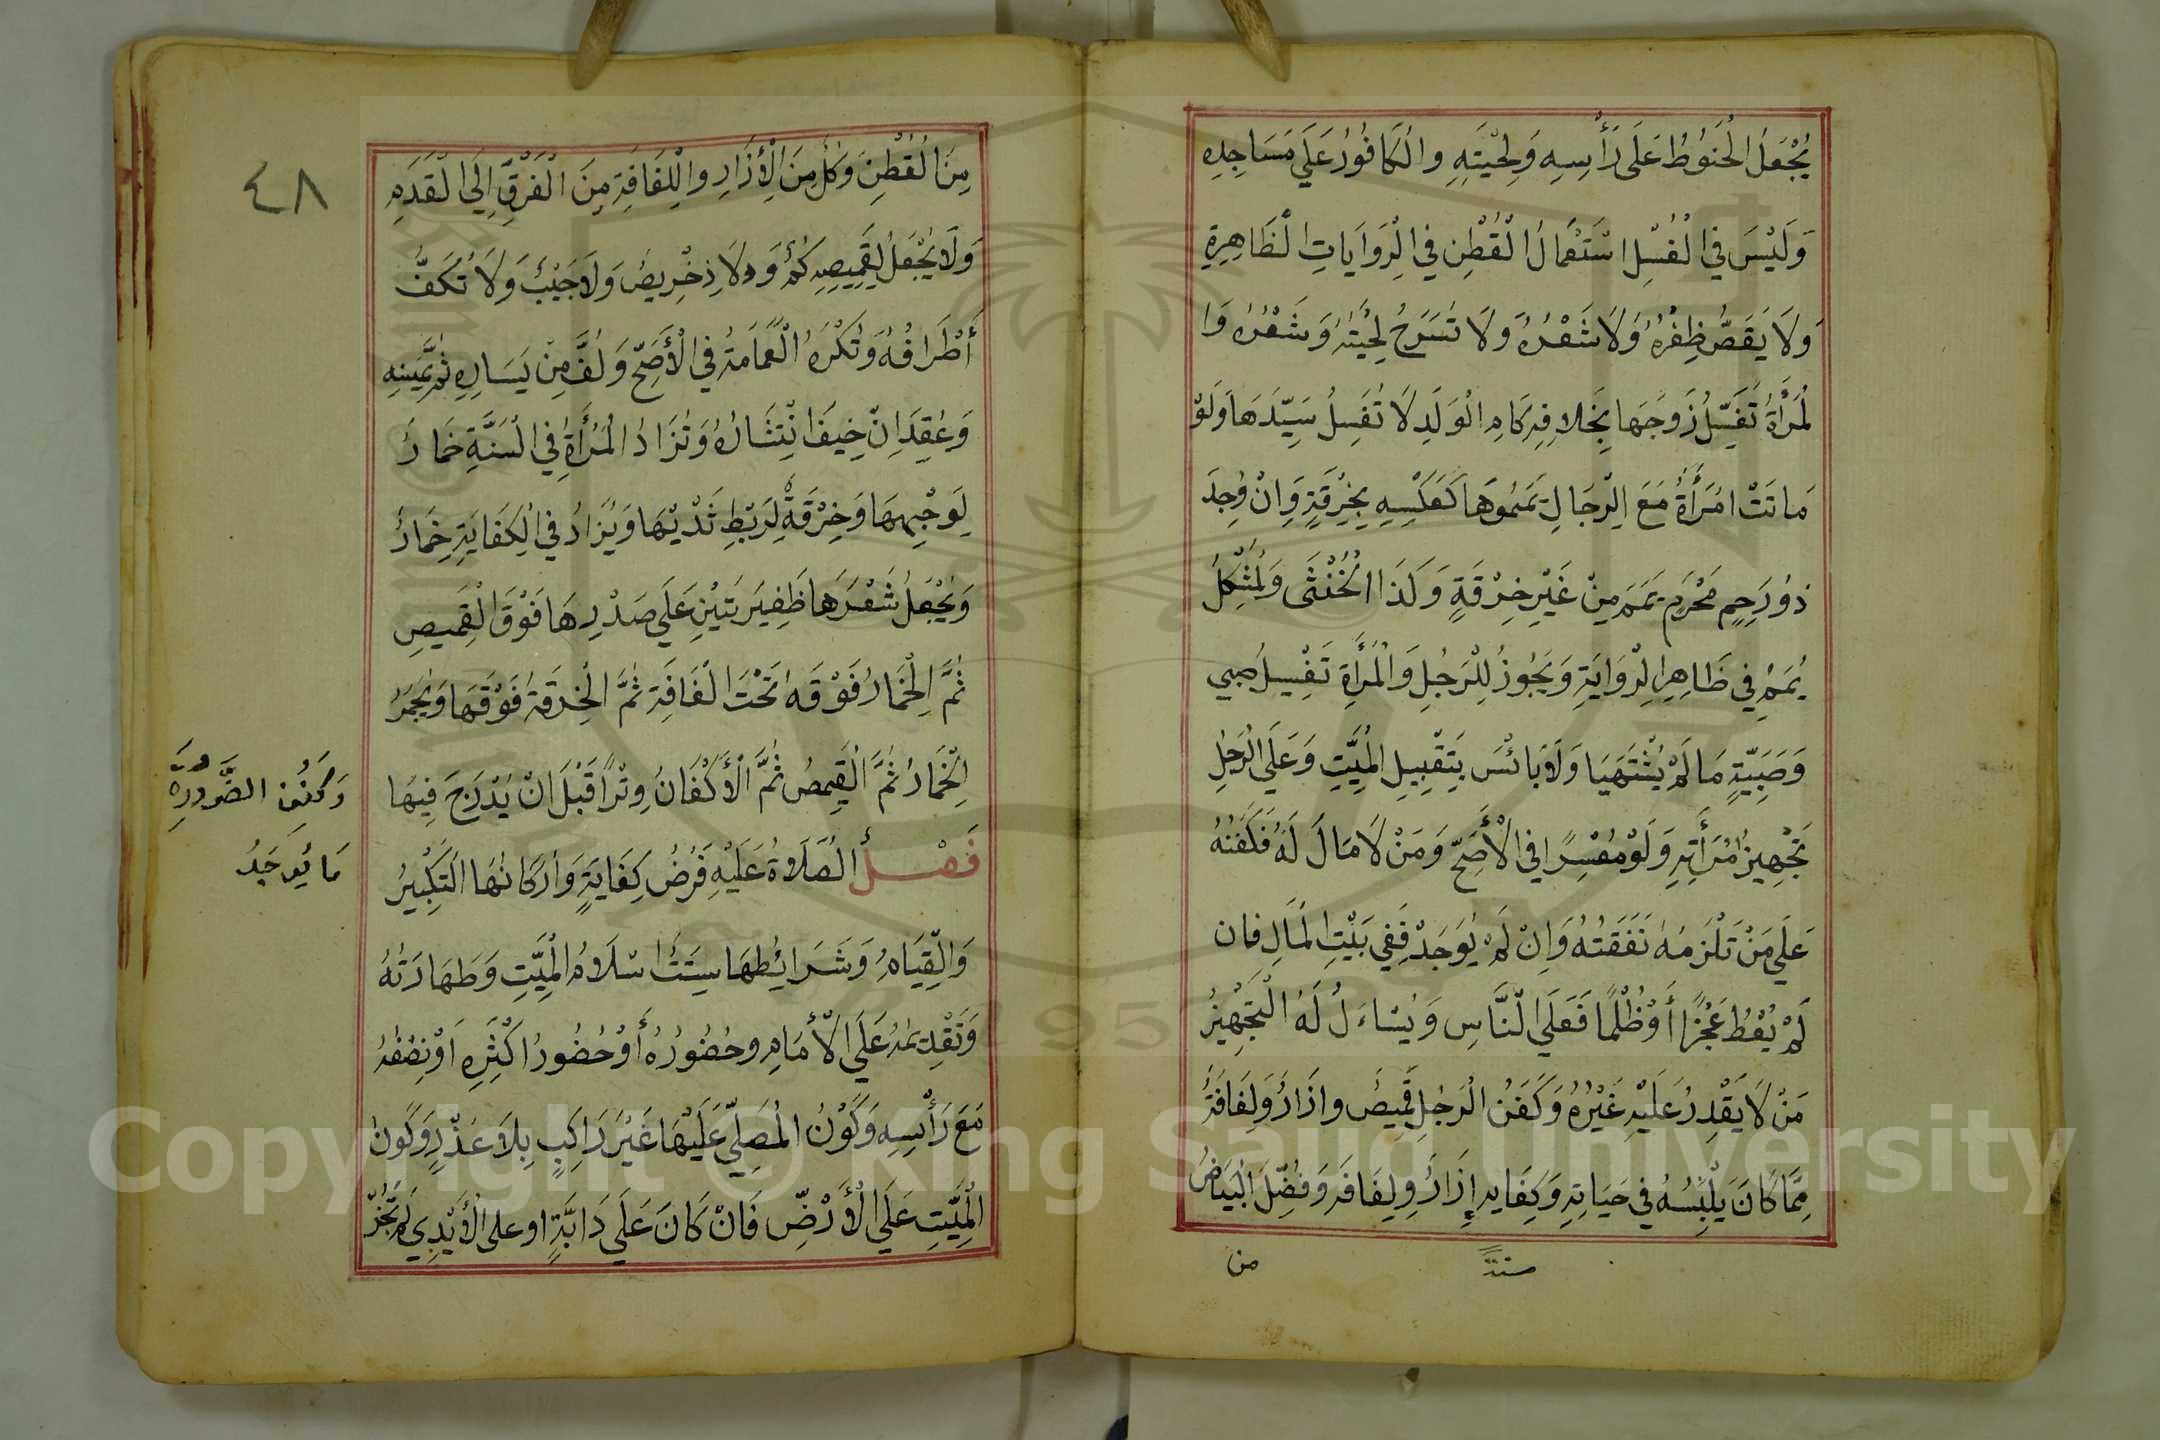 يُجْعَلُ الْحَنُوطُ عَلَى رَأْسِهِ وَلِحْيَتِهِ وَالْكَافُورُ عَلَى مَسَاجِدِهِ
وَلَيْسَ فِي الْغُسْلِ اسْتِعْمَالُ الْقُطْنِ فِي الرِّوَايَاتِ الظَّاهِرَةِ
وَلَا يُقَصُّ ظِفْرُهُ وَلَا شَعْرُهُ وَلَا تُسَرَّحُ لِحْيَتُهُ وَشَعْرُهُ وَا
لْمَرْأَةُ تُغَسِّلُ زَوْجَهَا بِخِلَافِهِ كَامِ الْوَلَدِ لَا تُغَسِلُ سَيِّدَهَا وَلَوْ
مَاتَتْ امْرَأَةٌ مَعَ الرِّجَالِ يَمَمُوهَا كَعَكْسِهِ بِخِرْقَةٍ وَاِنْ وُجِدَ
ذُو رَحِمٍ مَحْرَمٍ يَمَمَ مِنْ غَيْرِ خِرْقَةٍ وَكَذَا الْخُنْثَى وَلْمُشْكِلُ
يُمَمُ فِي ظَاهِرِ الرِّوَايَةِ وَيَجُوزُ لِلرَّجُلِ وَالْمَرْأَةِ تَغْسِيلُ صَبِي
وَصَبِيَّةٍ مَا لَمْ يُشْتَهَيَا وَلَا بَائْسَ بِتَقْبِيلِ الْمَيِّتِ وَعَلَى الرَّجُلِ
تَجْهِيزُ امْرَأَتِهِ وَلَوْ مُعْسِرًا فِي الْأَصَحِّ وَمَنْ لَا مَالَ لَهُ فَكَفَنُهُ
عَلَى مَنْ تَلْزَمُهُ نَفَقَتُهُ وَاِنْ لَمْ يُوجَدْ فَفِي بَيْتِ الْمَالِ فَان
لَمْ يُعْطِ عَجْزًا أَوْ ظُلْمًا فَعَلَى النَّاسِ وَيُسْاءَلُ لَهُ التَّجْهِيزُ
مَنْ لَا يَقْدِرُ عَلَيْهِ غَيْرُهُ وَكَفَنُ الْرَجُلِ قَمِيصٌ وَازَارٌ وَلِفَافَةٌ
مِمَّا كَانَ يَلْبِسُهُ فِي حَيَاتِهِ وَكِفَايه إِزَارٌ وَلِفَافَه وَفُضِّلَ الْبَيَاضُ
سنة من
٤٨
مِنَ الْقُطْنِ وَكُلٌّ مِنَ الْأِزَارِ وَالْلِفَافَةِ مِنَ الْفَرْقِ اِلَى الْقَدَمِ
وَلَا يُجْعَلُ لِقَمِيصِهِ كُمٌّ وَلَا دِخْرِيصٌ وَلَا جَيْبٌ وَلَا تُكَفُّ
أَطْرَافُهُ وَتُكْرَهُ الْعَمَامَةُ فِي الْأَصَحِّ وَلُفَّ مِنْ يَسَارِهِ ثُمَّ يَمِينِهِ
وَعُقِدَ اِنْ خِيفَ انْتِشَارُهُ وَتُزَادُ الْمَرْأَةُ فِي السُنَّةِ خِمَارٌ
لِوَجْهِهَا وَخِرْقَةٌ لِرَبْطِ ثَدْيَيْهَا وَيُزَادُ فِي الْكِفَايَةِ خِمَارٌ
وَيُجْعَلُ شَعْرُهَا ظَفِيرَتَيْنِ عَلَى صَدْرِهَا فَوْقَ الْقَمِيصِ
ثُمَّ الْخِمَارُ فَوْقَهُ تَحْتَ الْفَافَةِ ثُمَّ الْخِرْقَةُ فَوْقَهَا وَيُجْمَرُ
الْخِمَارُ ثُمَّ الْقَمِيصُ ثُمَّ الْأَكْفَانُ وِتْرًا قَبْلَ انْ يُدْرَجَ فِيهَا
وَكَفَنُ الضَّرُورَةِ
مَا يُوجَدُ
فَصْلٌ الصَّلَاةُ عَلَيْهِ فَرْضُ كِفَايَةٍ وَارْكَانُهَا التَّكْبِيرُ
وَالْقِيَامُ وَشَرَايُطُهَا سِتَتٌ اسْلَامُ الْمَيِّتِ وَطَهَارَتُهُ
وَتَقْدِيمُهُ عَلَى الْأمَامِ وحُضُورُهُ أَوْ حُضُورُ اَكْثَرِهِ اَوْ نِصْفُهُ
مَعَ رَأْسِهِ وَكَوْنُ الْمُصَلِّي عَلَيْهَا غَيْرَ رَاكِبٍ بِلَا عُذْرٍ وَكَوْنُ
الْمَيِّتِ عَلَى الْأَرْضِ فَانْ كَانَ عَلَى دَابَّةٍ او على الْأَيْدِي لَمْ تَجُزْ
Copyright © King Saud University
1957